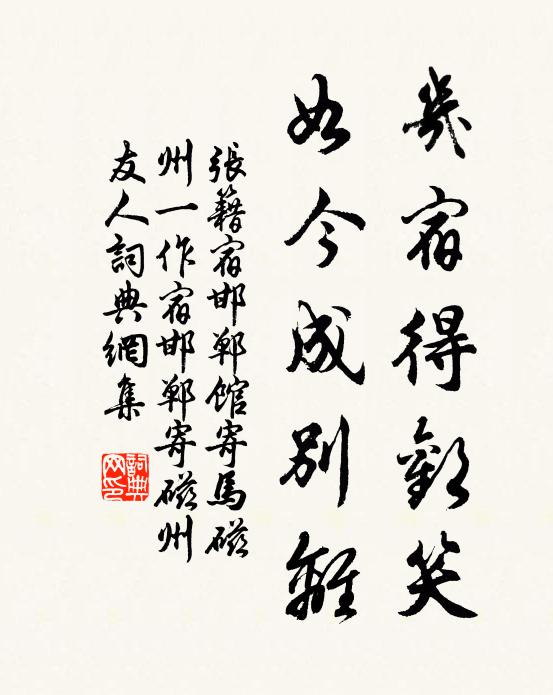 幾宿得歡笑
如今成別離
張籍宿邯鄲館寄馬磁
州一作宿邯鄲寄磁州
友人詞典網集
詞典
网印